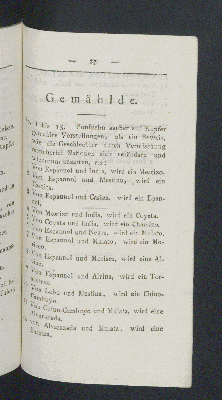 — 27 —
Gemählde.
1 bis 15. Funfzehn sauber auf Kupfer
gemahlte Vorstellungen, als ein Beweis,
wie die Geschlechter durch Vermischung
Nationen sich verändern und
ausarten, als:
Von Espannol und India, wird ein Mestizo.
Von Espannol und Mestizo, wird ein
Castica.
Von Espannol und Casica, wird ein Espan-
nol.
Von Mestizo und India, wird ein Coyota.
Von Coyota und India, wird ein
Von Espannol und Negra, wird ein Mulato.
Von Espannol und Mulato, wird ein Mo-
risco.
Von Espannol und Morisca, wird eine Al-
vina.
Von Espannol und Alvina, wird ein Tor-
Von Lobo und Mestiza, wird ein Chino-
Cambuyo.
Von Cambuyo und Mulata, wird eine
Alvarazada.
Von Alvarazada und Mulata, wird eine